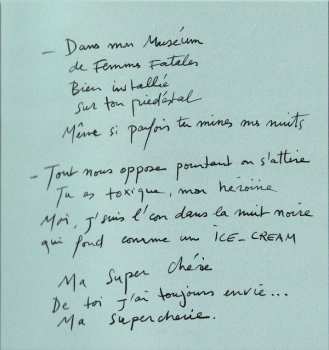 - Dans mon Muséum
de Femmes Fatales
Bien installée
sur ton piédestal
Même si parfois tu mines mes nuits
- Tout nous oppose pourtant on s'attire
Tu es toxique, mon héroïne
Moi, j'suis l'con dans la nuit noire
qui fond comme un ICE-CREAM
Ma Super Chérie
De toi j'ai toujours envie...
Ma Supercherie.